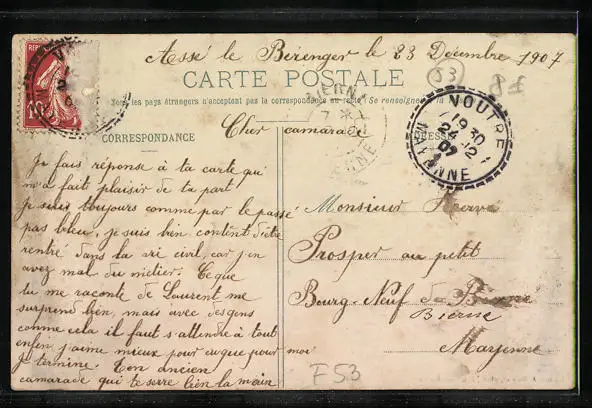 Assé le Bérenger le 23 Décembre 1907
CARTE POSTALE
53
Tous les pays étrangers n'acceptent pas la correspondance au recto (Se renseigner à la
CORRESPONDANCE
Cher camarade
NOUTRE
19 30
24 - 12
07
MAYENNE
Je fais réponse à ta carte qui
m'a fait plaisir de ta part
Je suis toujours comme par le passé
pas bleu, je suis bien content d'être
rentré dans la vie civil, car j'en
avez mal du métier. Ce que
tu me raconte de Laurent me
surprend bien, mais avec des gens
comme cela il faut s'attendre à tout
enfin j'aime mieux pour que pour moi
Je termine. Ton ancien
camarade qui te serre bien la main
Monsieur Hervé
Prosper au petit
Bourg-Neuf de
Bierné
Mayenne
F53